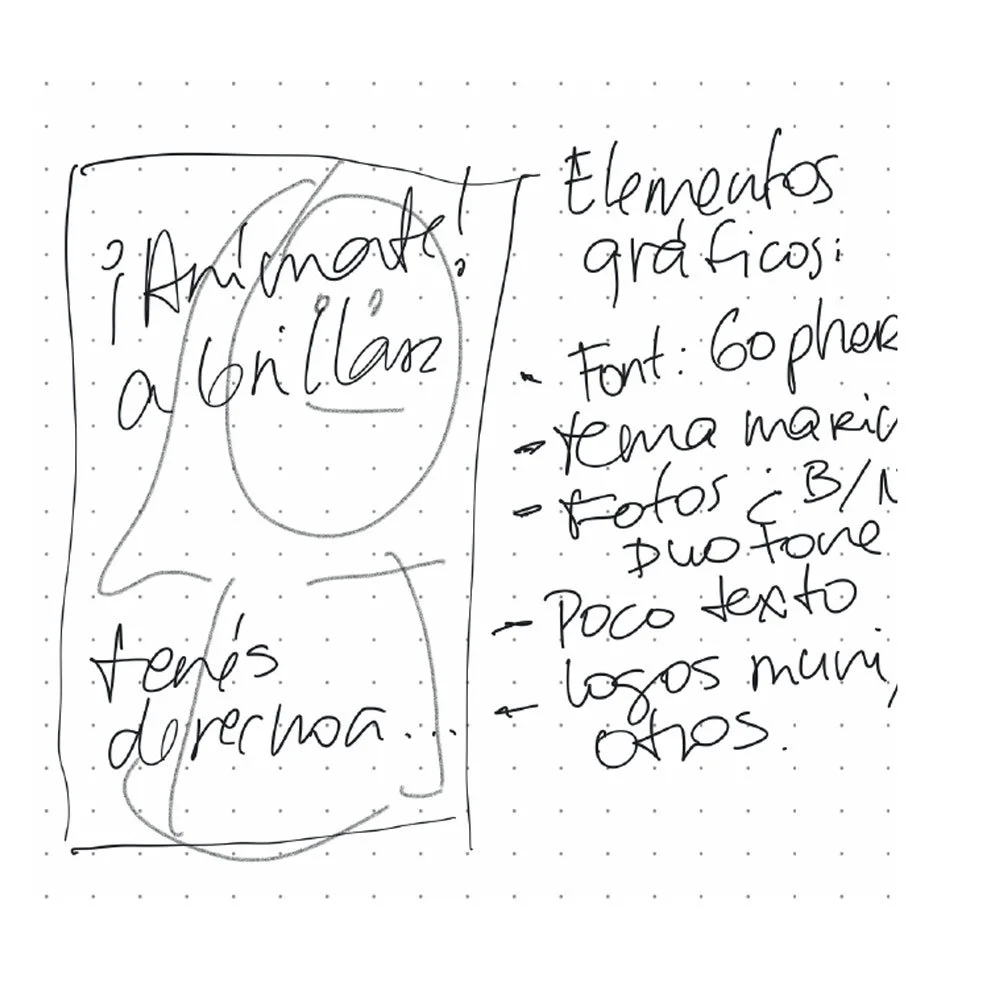 ¡Anímate!
a brillar
tenés
derecho a...
Elementos
gráficos:
- Font: Gopher
- tema
- Fotos ¿ B/N
Duotone
- Poco texto
- logos muni,
otros.